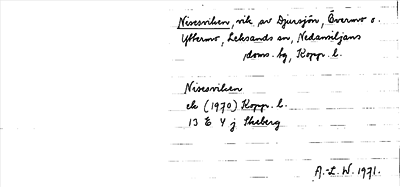 Nisesviken, vik av Djursjön, Övermo o.
Yttermo, Leksands sn, Nedansiljans
doms. hg, Kopp. l.
Nisesviken
ek (1970) Kopp. l.
13 E 4 j Skeberg
A.-L. W. 1971.